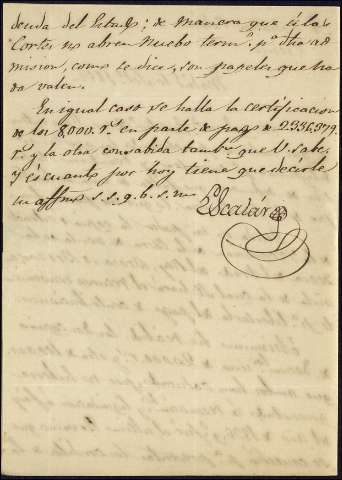 deuda del Estado; de manera que si las
Cortes no abren nuebo term.º p.ª dha ad
mision, como se dice, son papeles que na
da valen.
En igual caso se halla la certificacion
de los 8,000 r.s en parte de pago de 2.336,379
r.s y la otra consabida tambn. que V. sabe,
y és cuanto por hoy tiene que decirle
su affmo s. s. q. b. s. m.
Escalár